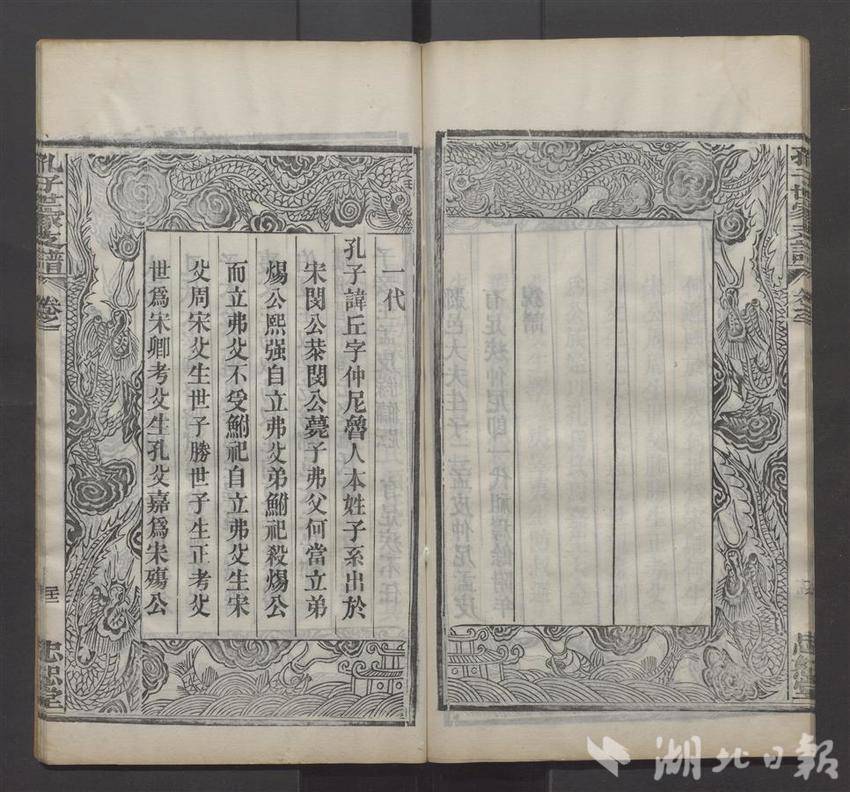 一代
孔子諱丘字仲尼魯人本姓子系出於
宋閔公恭閔公薨子弗父何當立弟
煬公熙强自立弗父弟鮒祀殺煬公
而立弗父不受鮒祀自立弗父生宋
父周宋父生世子勝世子生正考父
世爲宋卿考父生孔父嘉爲宋殤公
孔子世家支譜
卷之一
忠恕堂
湖北日報